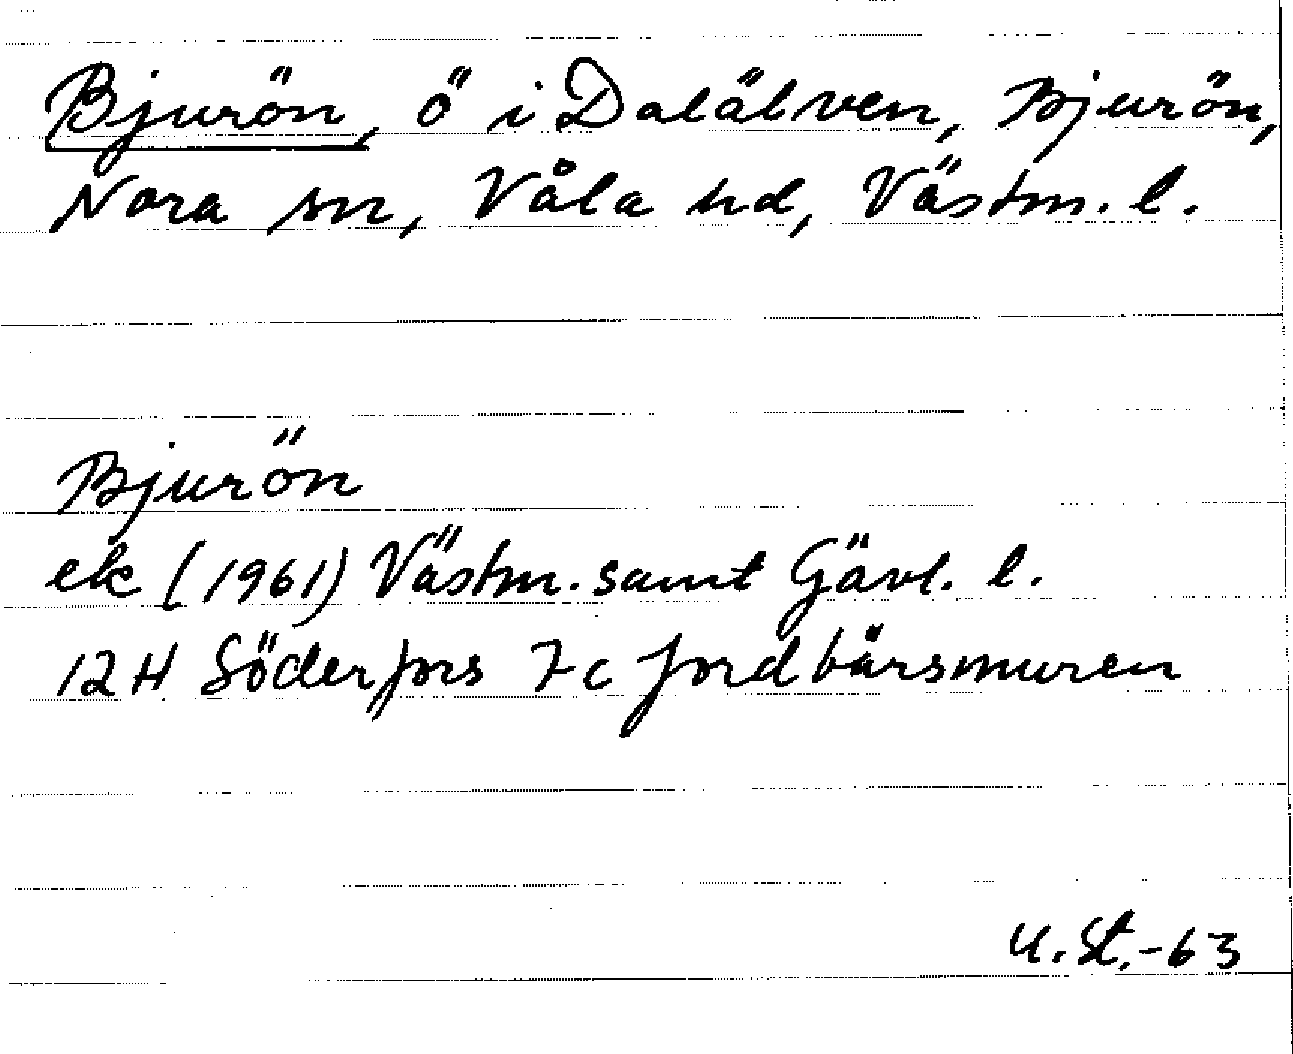 Bjurön, ö i Dalälven, Bjurön,
Nora sn, Våla hd, Västm. l.
Bjurön
ek (1961) Västm. samt Gävl. l.
12H Söderfors 7c Jordbärsmuren
U. St. -63